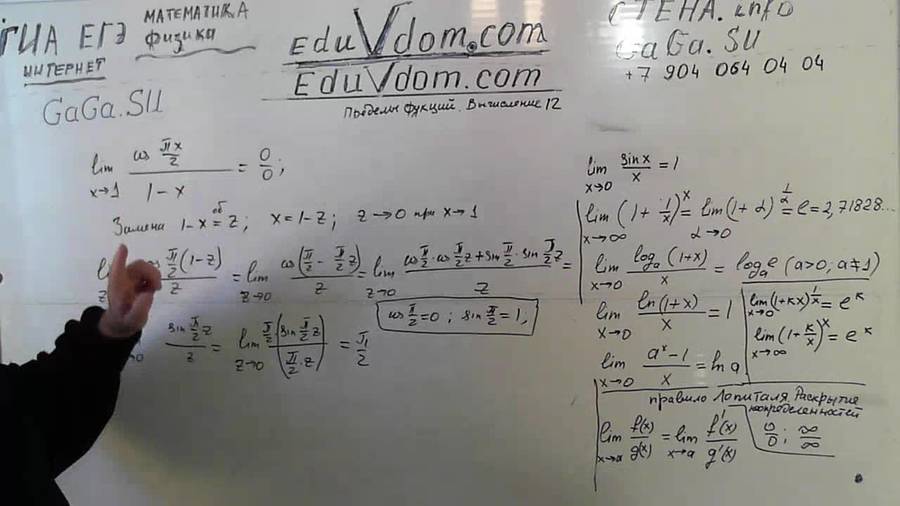 ГИА ЕГЭ МАТЕМАТИКА
физика
ИНТЕРНЕТ
GaGa.SU
EduVdom.com
EduVdom.com
Пределы функций. Вычисление 12
СТЕНА.info
GaGa.SU
+7 904 064 04 04
lim x→1 cos πx/2 / 1-x = 0/0;
Замена 1-x об= z; x=1-z; z→0 при x→1
cos π/2(1-z) / z = lim z→0 cos(π/2 - π/2 z) / z = lim z→0 cos π/2 · cos π/2 z + sin π/2 · sin π/2 z / z =
cos π/2 = 0; sin π/2 = 1,
sin π/2 z / z = lim z→0 π/2 (sin π/2 z) / (π/2 · z) = π/2
lim x→0 sin x / x = 1
lim x→∞ (1 + 1/x)^x = lim α→0 (1 + α)^1/α = e = 2,71828...
lim x→0 log_a (1+x) / x = log_a e (a>0; a≠1)
lim x→0 ln(1+x) / x = 1
lim x→0 (1+kx)^1/x = e^k
lim x→∞ (1+k/x)^x = e^k
lim x→0 a^x - 1 / x = ln a
правило Лопиталя Раскрытие
неопределенностей
lim x→a f(x)/g(x) = lim x→a f'(x)/g'(x)
0/0; ∞/∞